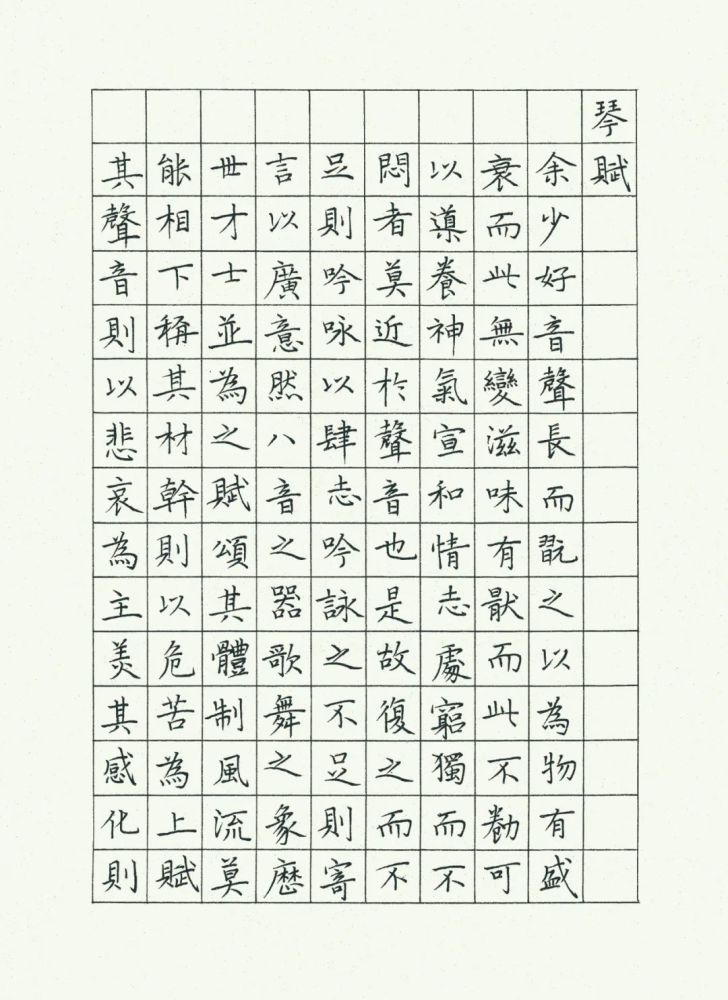 琴賦
余少好音聲長而翫之以為物有盛
衰而此無變滋味有猒而此不勌可
以導養神氣宣和情志處窮獨而不
悶者莫近於聲音也是故復之而不
足則吟咏以肆志吟詠之不足則寄
言以廣意然八音之器歌舞之象歷
世才士並為之賦頌其體制風流莫
能相下稱其材幹則以危苦為上賦
其聲音則以悲哀為主美其感化則